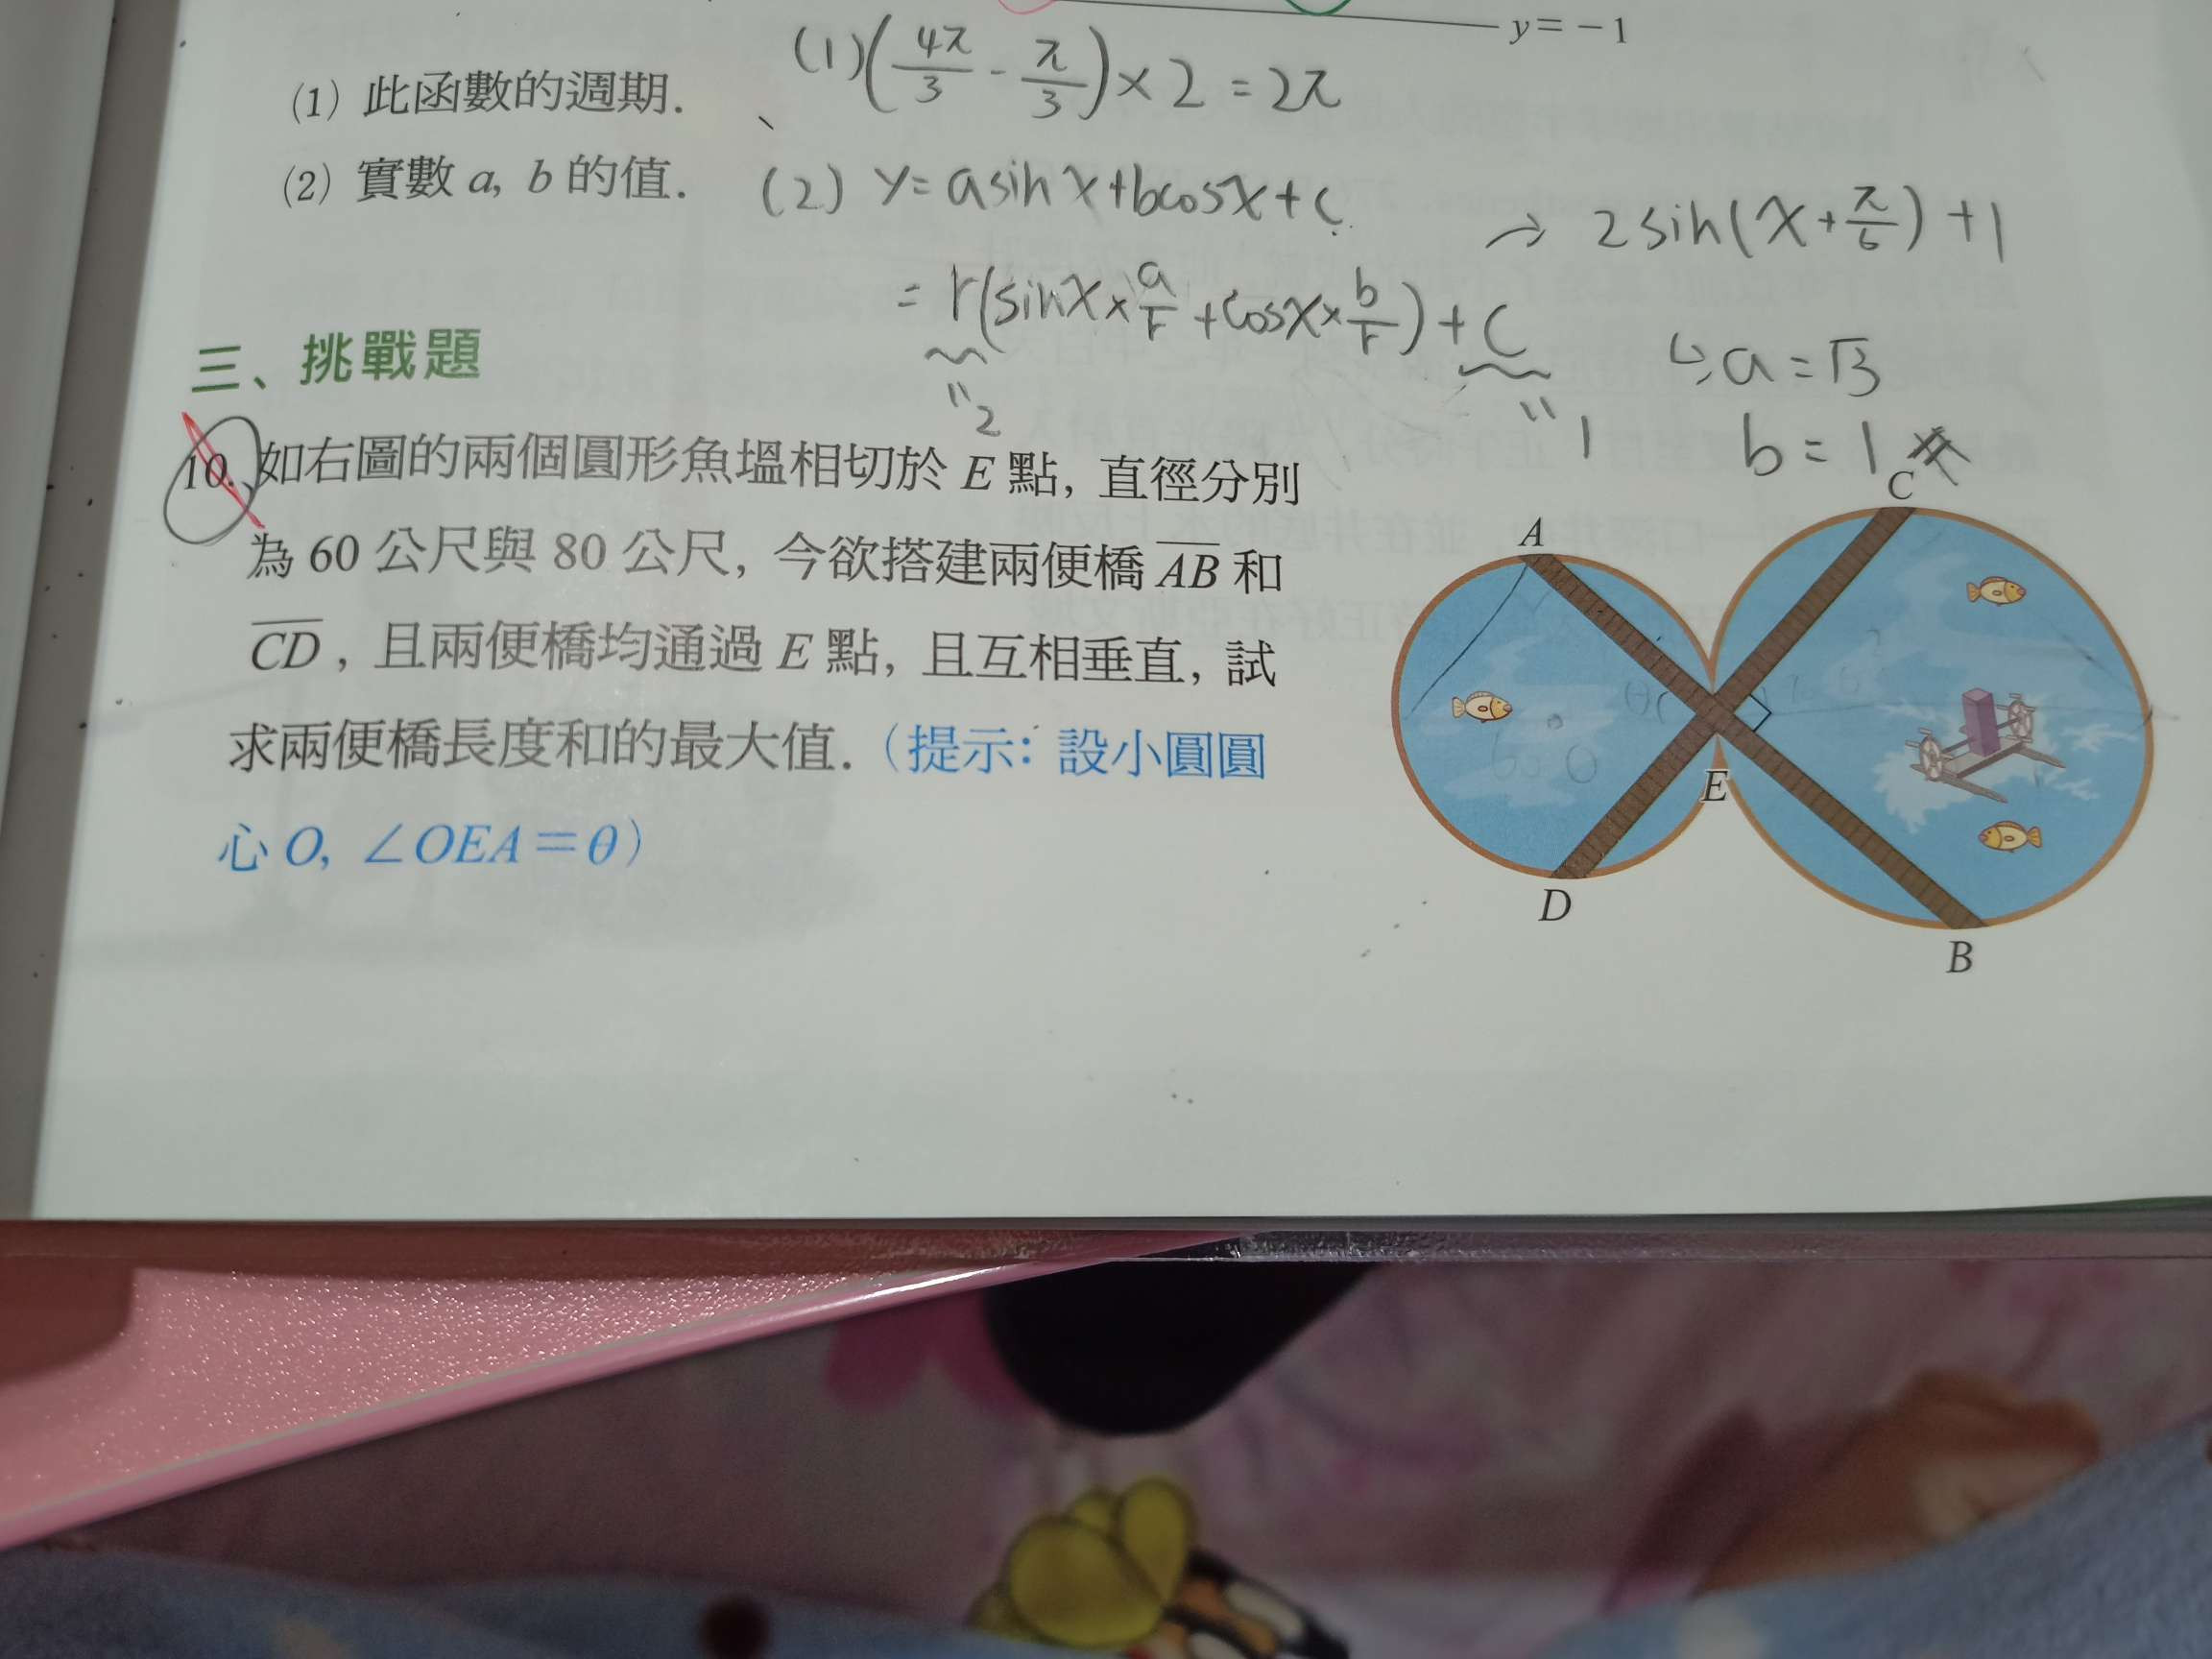 y=－1
(1) 此函數的週期.
(1) (4π/3 - π/3)×2=2π
(2) 實數 a, b 的值.
(2) y= asinx+bcosx+c
→ 2sin(x+π/6)+1
= r(sinx×a/r +cosx×b/r)+c
"2
"1
↳a=√3
b=1
三、挑戰題
10. 如右圖的兩個圓形魚塭相切於 E 點, 直徑分別
為 60 公尺與 80 公尺, 今欲搭建兩便橋 AB 和
CD, 且兩便橋均通過 E 點, 且互相垂直, 試
求兩便橋長度和的最大值.(提示：設小圓圓
心 O, ∠OEA=θ)
C
A
E
D
B